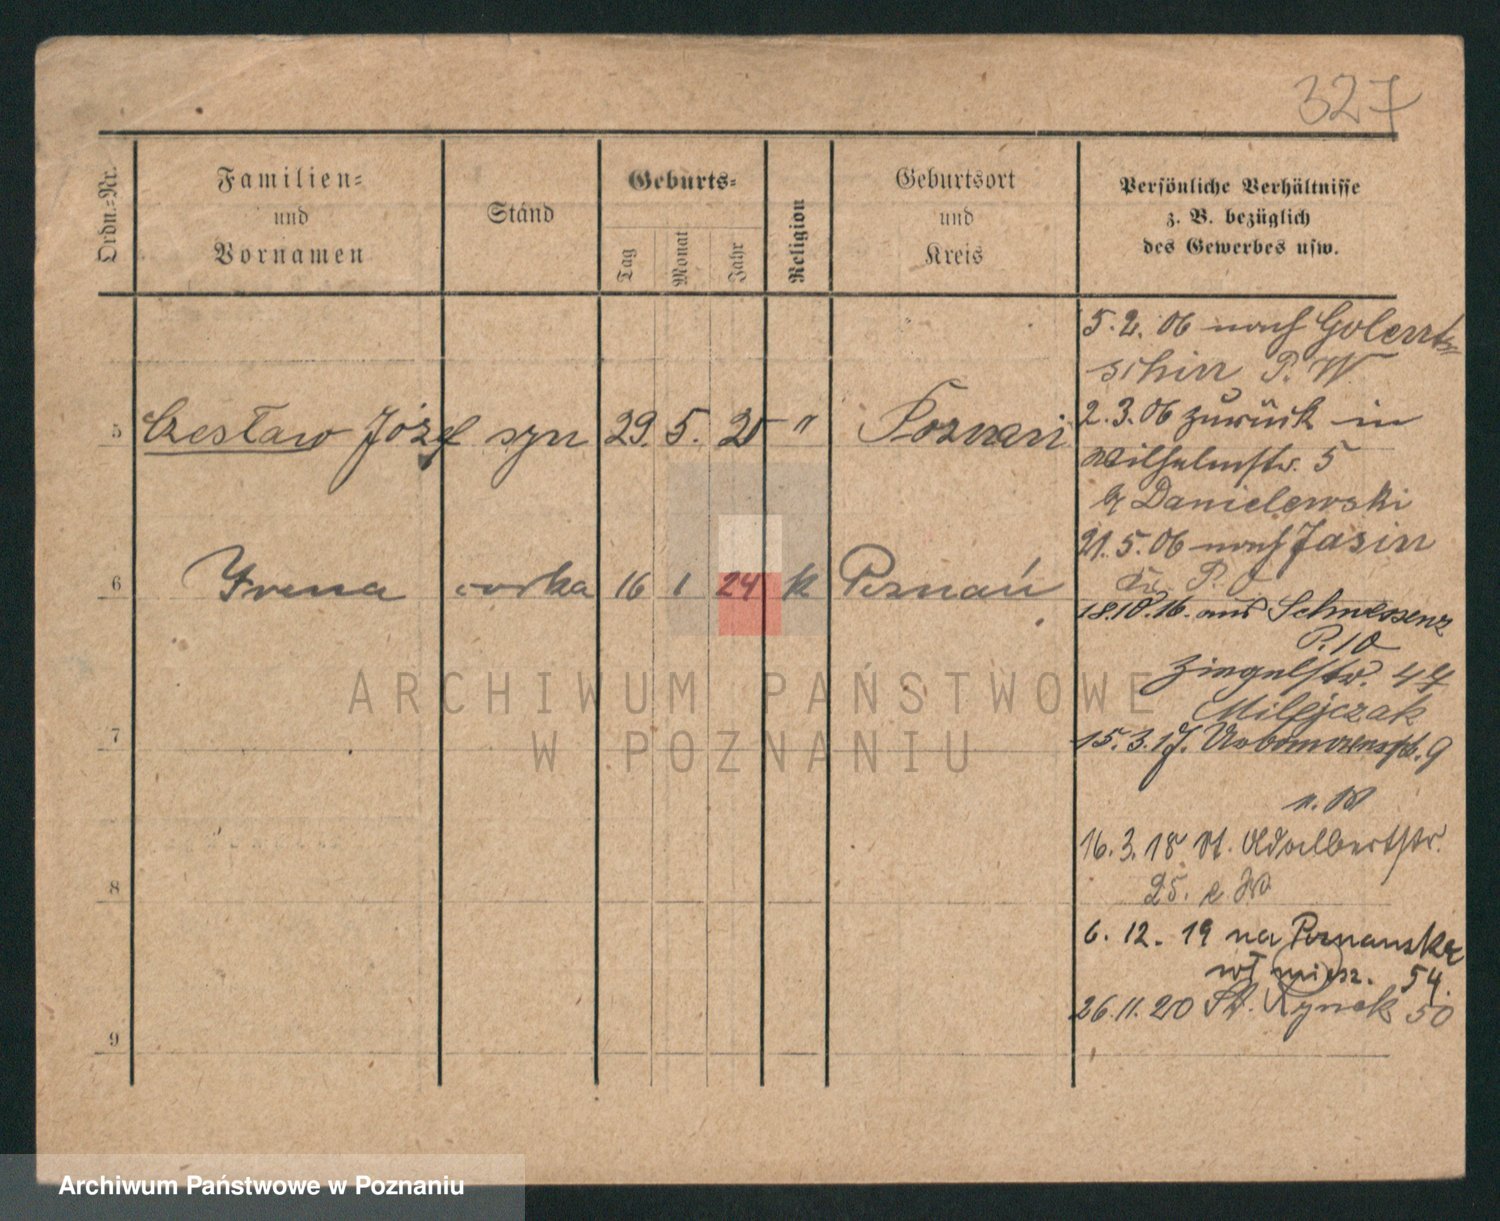 327
Ordn.-Nr.
Familien-
und
Vornamen
Stand
Geburts-
Tag
Monat
Jahr
Religion
Geburtsort
und
Kreis
Persönliche Verhältnisse
z. B. bezüglich
des Gewerbes usw.
5 Czesław Józef syn 29. 5. 20 " Poznań
6 Irena córka 16 1 24 k Poznań
7
8
9
5. 2. 06 nach Golentz-
schin P. W.
2. 3. 06 zurück in
Wilhelmstr. 5
b/ Danielewski
21. 5. 06 nach Jasin
Kr. P. O
18.10.16. aus Schwersenz
P. 10
Ziegelstr. 47
Milejczak
15. 3. 17. 9
n. W
16. 3. 18 St. Adalbertstr.
25. e W
6. 12. 19 na Poznańską
wł miesz. 54.
26. 11. 20 St. Rynek 50
ARCHIWUM PAŃSTWOWE
W POZNANIU
Archiwum Państwowe w Poznaniu